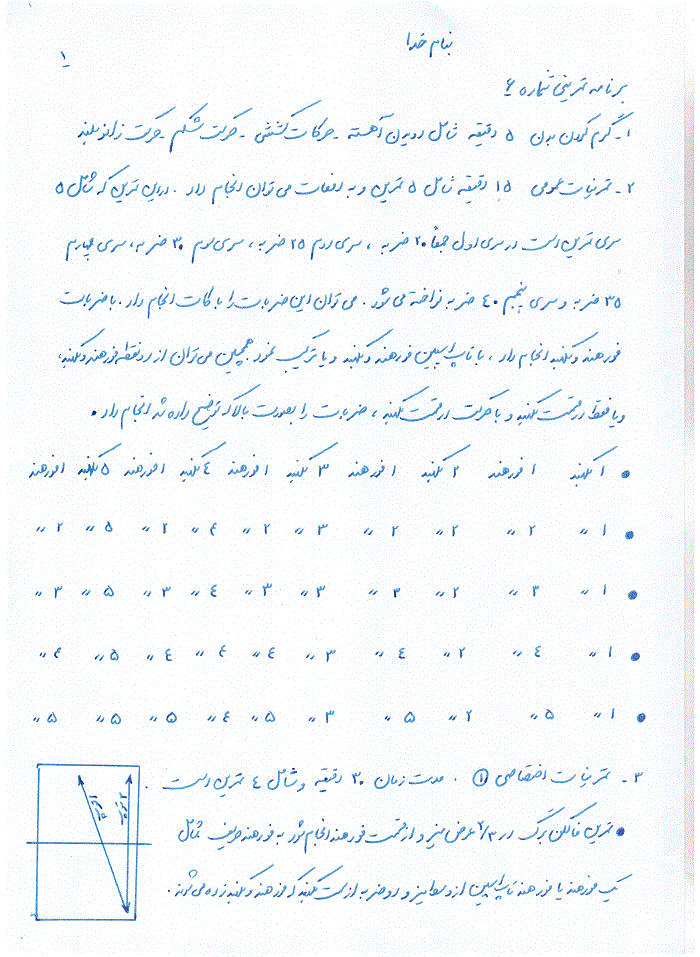 بنام خدا
۱
برنامه تمرینی شماره ۶
۱- گرم کردن بدن ۵ دقیقه شامل دویدن آهسته - حرکات کششی - حرکت شکم - حرکت زانو بلند
۲- تمرینات عمومی ۱۵ دقیقه شامل ۵ تمرین و به دفعات می توان انجام داد. در این تمرین که شامل ۵
سری تمرین است در سری اول جمعاً ۲۰ ضربه ، سری دوم ۲۵ ضربه ، سری سوم ۳۰ ضربه ، سری چهارم
۳۵ ضربه و سری پنجم ۴۰ ضربه نواخته می شود. می توان این ضربات را با کات انجام داد. با ضربات
فورهند و بکهند انجام داد ، با تاپ اسپین فورهند و بکهند و یا ترکیب نمود همچنین می توان از دو نقطه فورهند و بکهند،
و یا فقط در قسمت بکهند و با حرکت در قسمت بکهند ، ضربات را بصورت بالا که توضیح داده شد انجام داد.
• ۱ بکهند ۱ فورهند ۲ بکهند ۱ فورهند ۳ بکهند ۱ فورهند ۴ بکهند ۱ فورهند ۵ بکهند ۱ فورهند
• ۱ " ۲ " ۲ " ۲ " ۳ " ۲ " ۴ " ۲ " ۵ " ۲ "
• ۱ " ۳ " ۲ " ۳ " ۳ " ۳ " ۴ " ۳ " ۵ " ۳ "
• ۱ " ۴ " ۲ " ۴ " ۳ " ۴ " ۴ " ۴ " ۵ " ۴ "
• ۱ " ۵ " ۲ " ۵ " ۳ " ۵ " ۴ " ۵ " ۵ " ۵ "
۳- تمرینات اختصاصی ① . مدت زمان ۳۰ دقیقه و شامل ۴ تمرین است .
• تمرین فالکن برگ در ۲/۳ عرض میز و از قسمت فورهند انجام شود به فورهند حریف شامل
یک فورهند یا فورهند تاپ اسپین از وسط میز و دو ضربه از سمت بکهند که فورهند و بکهند زده می شوند .